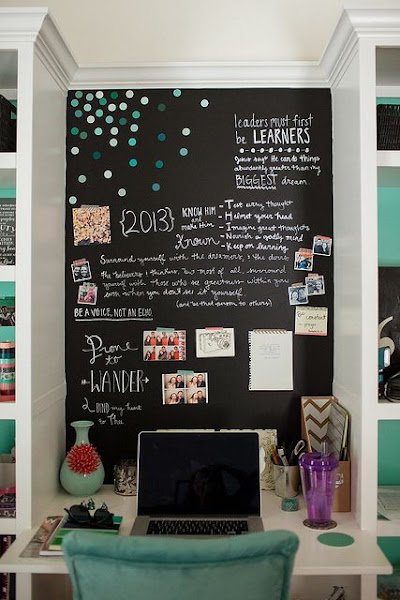 leaders must first
be LEARNERS
Jesus says He can do things
abundantly greater than my
BIGGEST dream
{2013}
KNOW HIM
and
make Him
Known
- Test every thought
- Humor your head
- Imagine great thoughts
- Nourish a godly mind
- Keep on learning
Surround yourself with the dreamers, & the doers
the believers & thinkers, but most of all, surround
yourself with those who see greatness within you
even when you don't see it yourself.
(and be that person to others)
BE A VOICE, NOT AN ECHO.
Be
constant
in prayer
Prone
to
WANDER
BIND my heart
to Thee